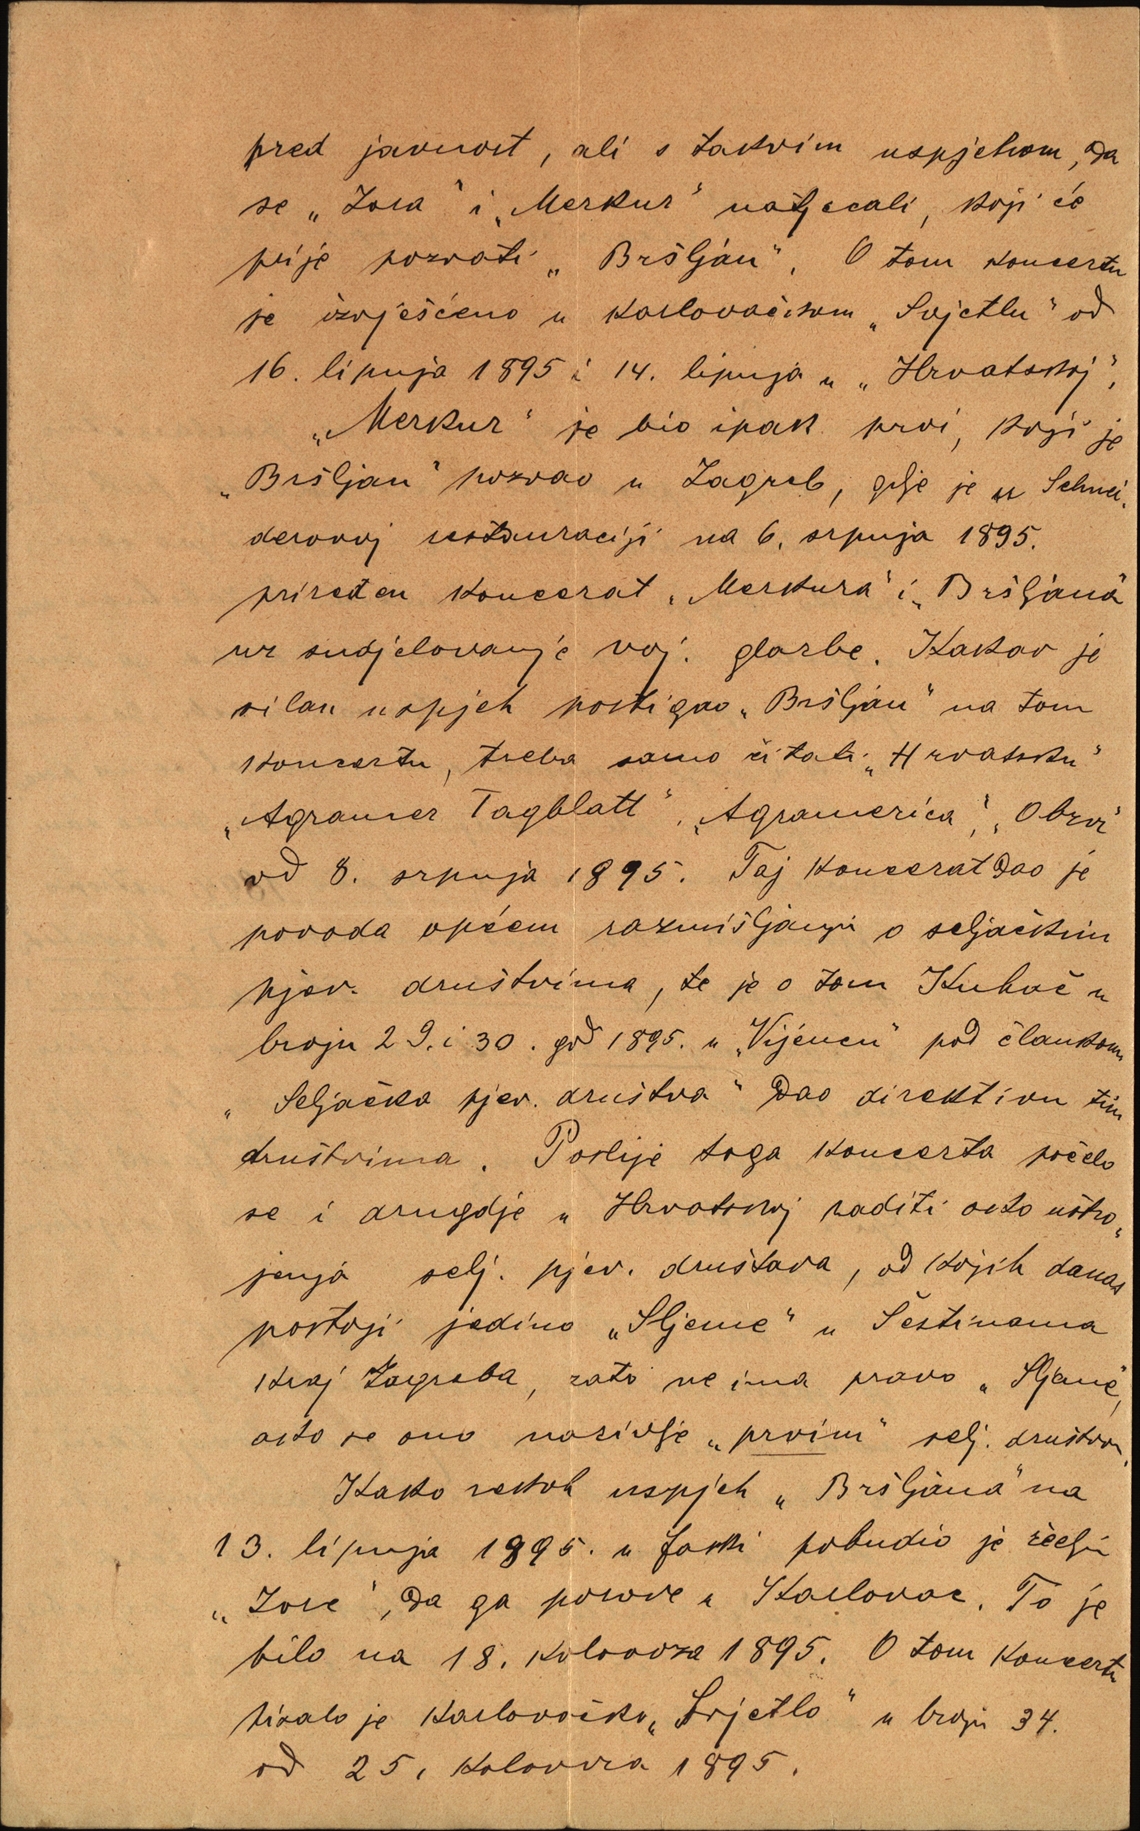 pred javnost, ali s takvim uspjehom, da
se „Zora" i „Merkur" natjecali, koji će
prije pozvati „Bršljan". O tom koncertu
je izvješćeno u karlovačkom „Svjetlu" od
16. lipnja 1895 i 14. lipnja u „Hrvatskoj".
„Merkur" je bio ipak prvi, koji je
„Bršljan" pozvao u Zagreb, gdje je u Schnei-
derovoj restauraciji na 6. srpnja 1895.
priređen koncerat „Merkura" i „Bršljana"
uz sudjelovanje voj. glazbe. Kakav je
silan uspjeh postigao „Bršljan" na tom
koncertu, treba samo čitati „Hrvatsku"
„Agramer Tagblatt", „Agramerica", „Obzor"
od 8. srpnja 1895. Taj koncerat dao je
povoda općem razmišljanju o seljačkim
pjev. društvima, te je o tom Kuhač u
broju 29. i 30. god 1895. u „Vijencu" pod člankom
„Seljačka pjev. društva" dao direktivu tim
društvima. Poslije toga koncerta počelo
se i drugdje u Hrvatskoj raditi oko ustro-
jenja selj. pjev. društava, od kojih danas
postoji jedino „Sljeme" u Šestinama
kraj Zagreba, zato ne ima pravo „Sljeme",
ako se ono nazivlje „prvim" selj. društvom.
Kako rekoh uspjeh „Bršljana" na
13. lipnja 1895. u Jaski pobudio je želju
„Zore", da ga pozove u Karlovac. To je
bilo na 18. kolovoza 1895. O tom koncertu
pisalo je karlovačko „Svjetlo" u broju 34.
od 25. kolovoza 1895.